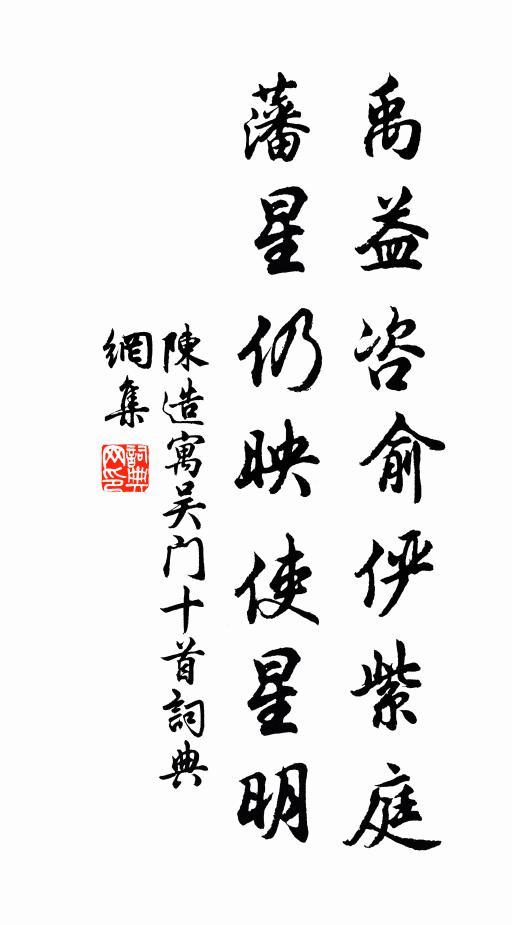 禹益咨俞俨紫庭
藩星仍映使星明
陳造寓吴门十首詞典
網集
詞典
网印